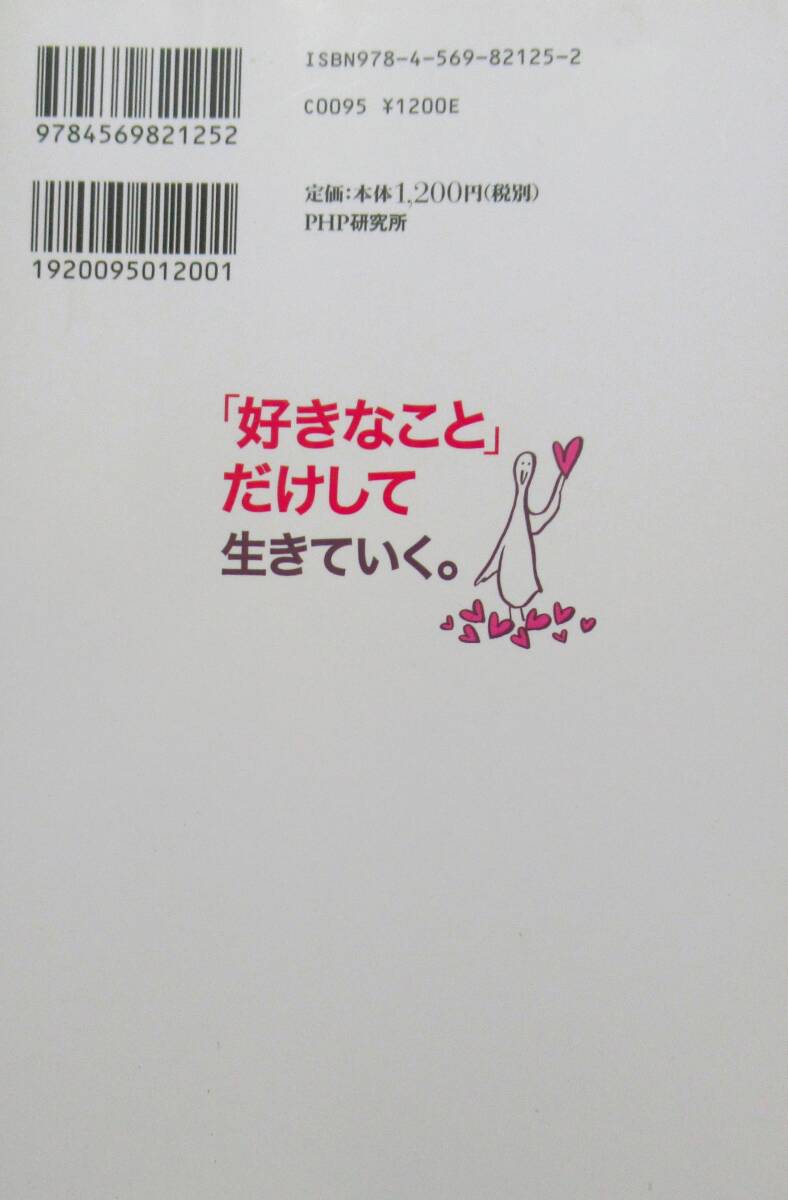 ISBN978-4-569-82125-2
9784569821252
C0095 ¥1200E
定価:本体1,200円(税別)
PHP研究所
1920095012001
「好きなこと」
だけして
生きていく。